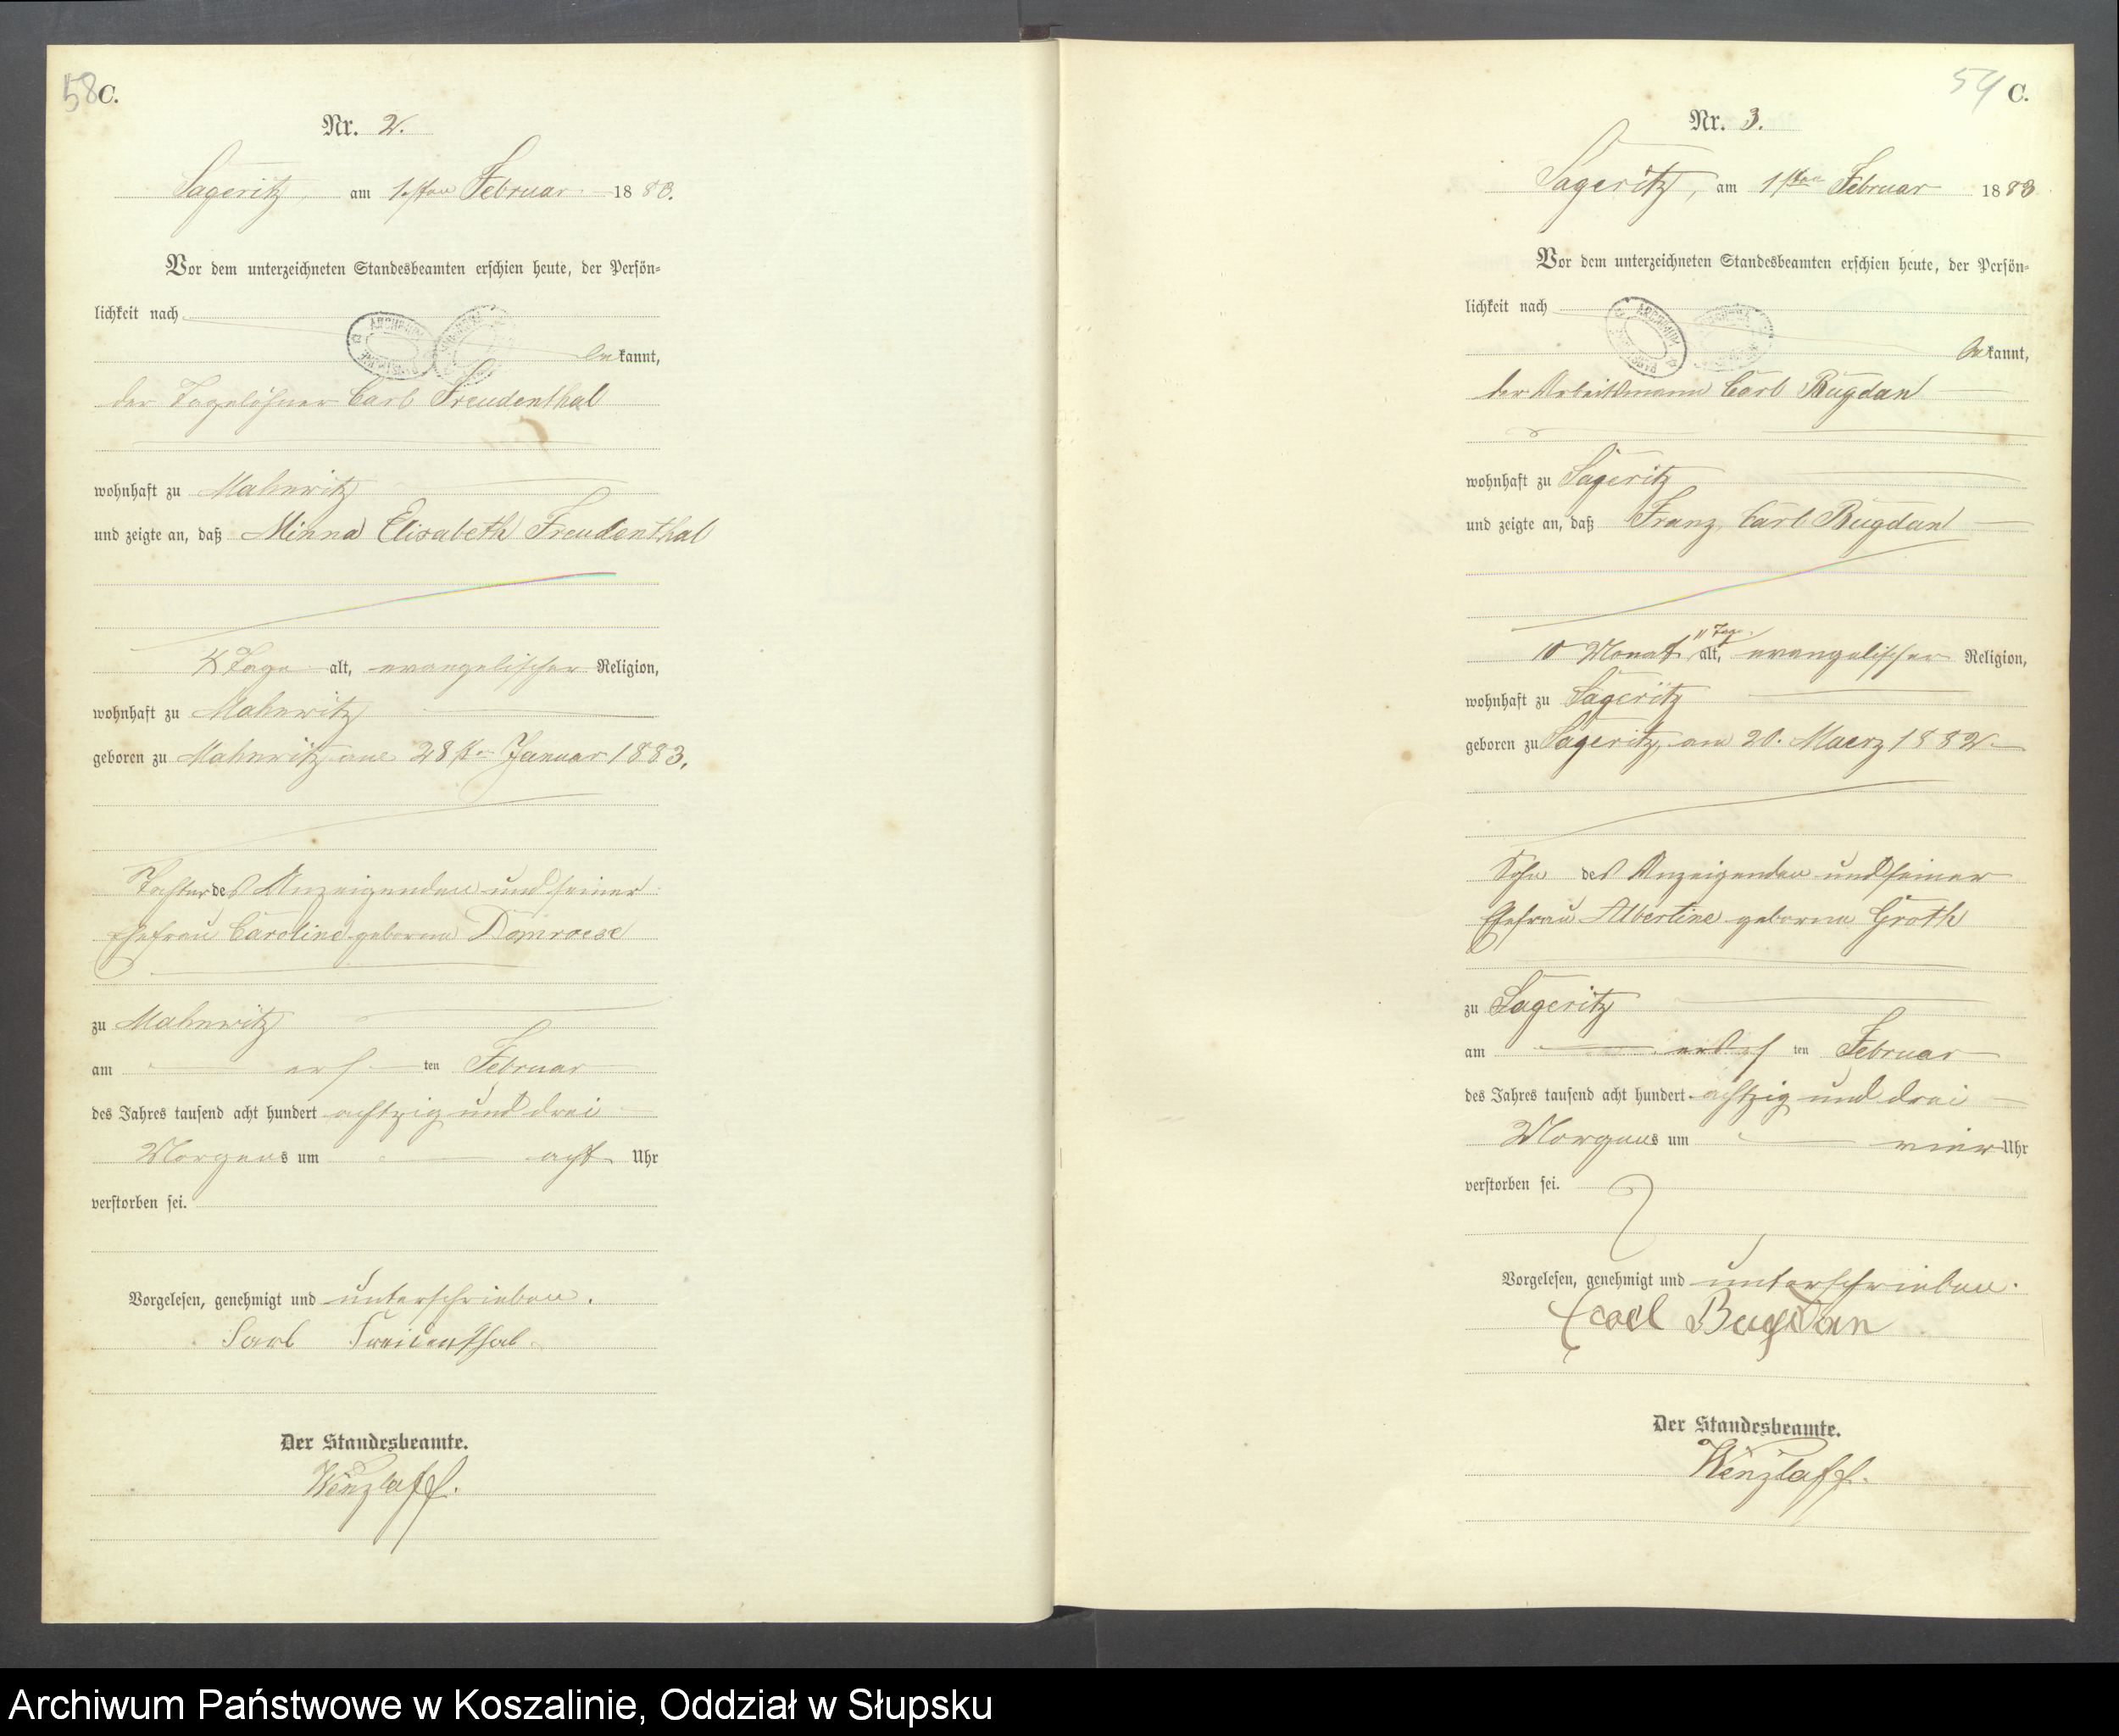 58 C.
Nr. 2.
Sageritz, am 1sten Februar 1883.
Vor dem unterzeichneten Standesbeamten erschien heute, der Persön-
lichkeit nach
bekannt,
der Tagelöhner Carl Freudenthal
wohnhaft zu Mahnwitz
und zeigte an, daß Minna Elisabeth Freudenthal
4 Tage alt, evangelischer Religion,
wohnhaft zu Mahnwitz
geboren zu Mahnwitz am 28ten Januar 1883.
Tochter des Anzeigenden und seiner
Ehefrau Caroline geborene Domroese
zu Mahnwitz
am ersten Februar
des Jahres tausend acht hundert achtzig und drei
Morgens um acht Uhr
verstorben sei.
Vorgelesen, genehmigt und unterschrieben.
Carl Freudenthal
Der Standesbeamte.
Wenzlaff.
59 C.
Nr. 3.
Sageritz, am 1sten Februar 1883
Vor dem unterzeichneten Standesbeamten erschien heute, der Persön-
lichkeit nach
bekannt,
der Arbeitsmann Carl Bugdan
wohnhaft zu Sageritz
und zeigte an, daß Franz Carl Bugdan
10 Monat 11 Tage alt, evangelischer Religion,
wohnhaft zu Sageritz
geboren zu Sageritz, am 20. Maerz 1882
Sohn des Anzeigenden und seiner
Ehefrau Albertine geborene Groth
zu Sageritz
am ersten Februar
des Jahres tausend acht hundert achtzig und drei
Morgens um vier Uhr
verstorben sei.
Vorgelesen, genehmigt und unterschrieben.
Carl Bugdan
Der Standesbeamte.
Wenzlaff.
Archiwum Państwowe w Koszalinie, Oddział w Słupsku